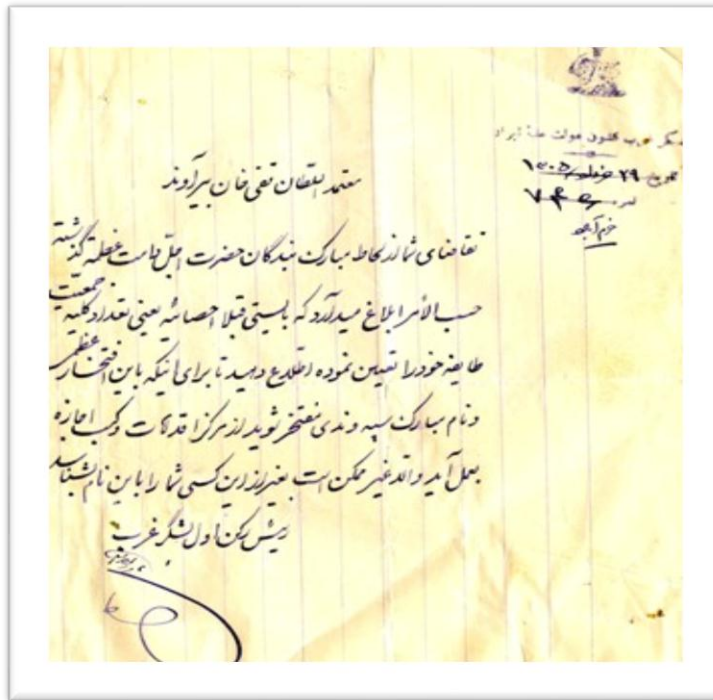 لشکر غرب قشون دولت علیه ایران
بتاریخ ۲۹ خرداد ۱۳۰۵
نمره ۷۴۵
خرم آباد
معتمد السلطان تقی خان بیرآوند
تقاضای شما از لحاظ مبارک بندگان حضرت اجل دامت عظمته گذشته
حسب الامر ابلاغ میدارد که بایستی قبلا احصائیه یعنی تعداد کلیه جمعیت
طایفه خود را تعیین نموده اطلاع دهید تا برای اینکه باین افتخار عظمی
و نام مبارک سپه وندی مفتخر شوید از مرکز اقدامات و کسب اجازه
بعمل آید والا غیر ممکن است بغیر از این کسی شما را باین نام بشناسد
رئیس رکن اول لشگر غرب